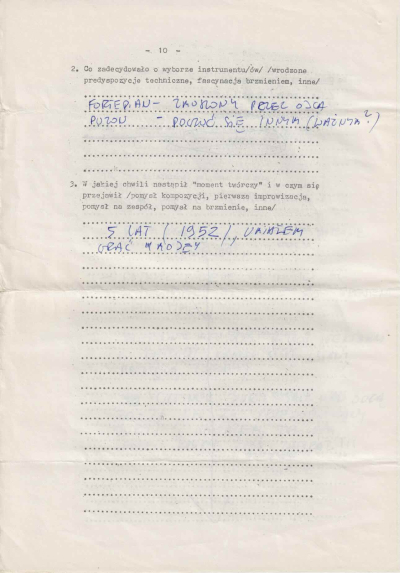 - 10 -
2. Co zadecydowało o wyborze instrumentu/ów/ /wrodzone
predyspozycje techniczne, fascynacje brzmieniem, inne/
FORTEPIAN - ZAUROCZONY PRZEZ OJCA
PUZON - POCZUĆ SIĘ INNYM (WAŻNYM?)
3. W jakiej chwili nastąpił "moment twórczy" i w czym się
przejawił /pomysł kompozycji, pierwsza improwizacja,
pomysł na zespół, pomysł na brzmienie, inne/
5 LAT / 1952 /, UMIAŁEM
GRAĆ